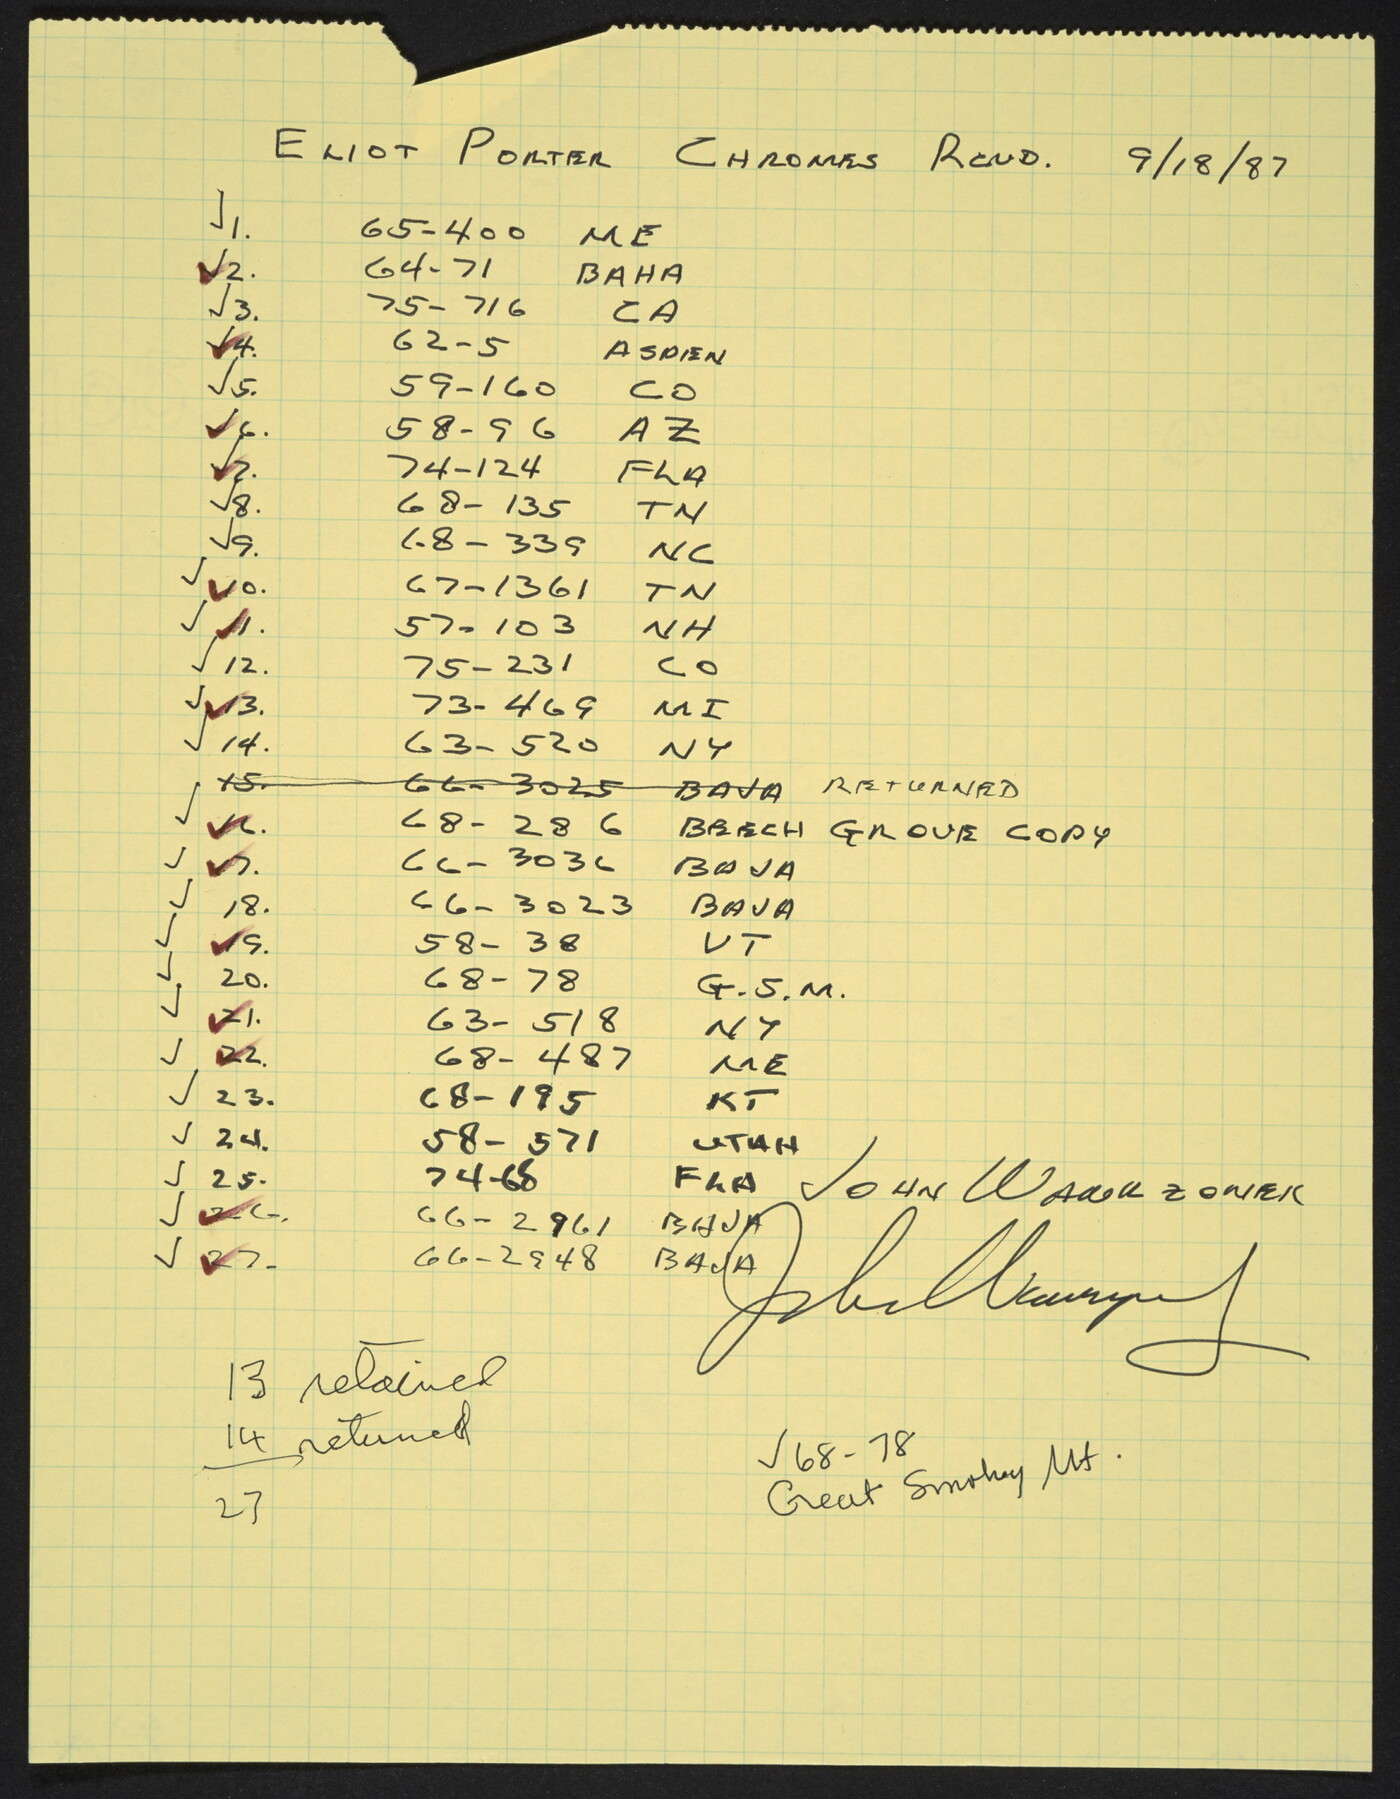 ELIOT PORTER CHROMES RCVD. 9/18/87
√1. 65-400 ME
√2. 64-71 BAHA
√3. 75-716 CA
√4. 62-5 ASPEN
√5. 59-160 CO
√6. 58-96 AZ
√7. 74-124 FLA
√8. 68-135 TN
√9. 68-339 NC
√ √10. 67-1361 TN
√ √11. 57-103 NH
√12. 75-231 CO
√ √13. 73-469 MI
√14. 63-520 NY
√ 15. 66-3025 BAJA RETURNED
√ √16. 68-286 BEECH GROVE COPY
√ √17. 66-3036 BAJA
√ 18. 66-3023 BAJA
√ √19. 58-38 VT
√ 20. 68-78 G.S.M.
√ √21. 63-518 NY
√ √22. 68-487 ME
√ 23. 68-195 KT
√ 24. 58-571 UTAH
√ 25. 74-68 FLA JOHN WAWRZONEK
√ √26. 66-2961 BAJA
√ √27. 66-2948 BAJA
13 retained
14 returned
27
√68-78
Great Smokey Mt.